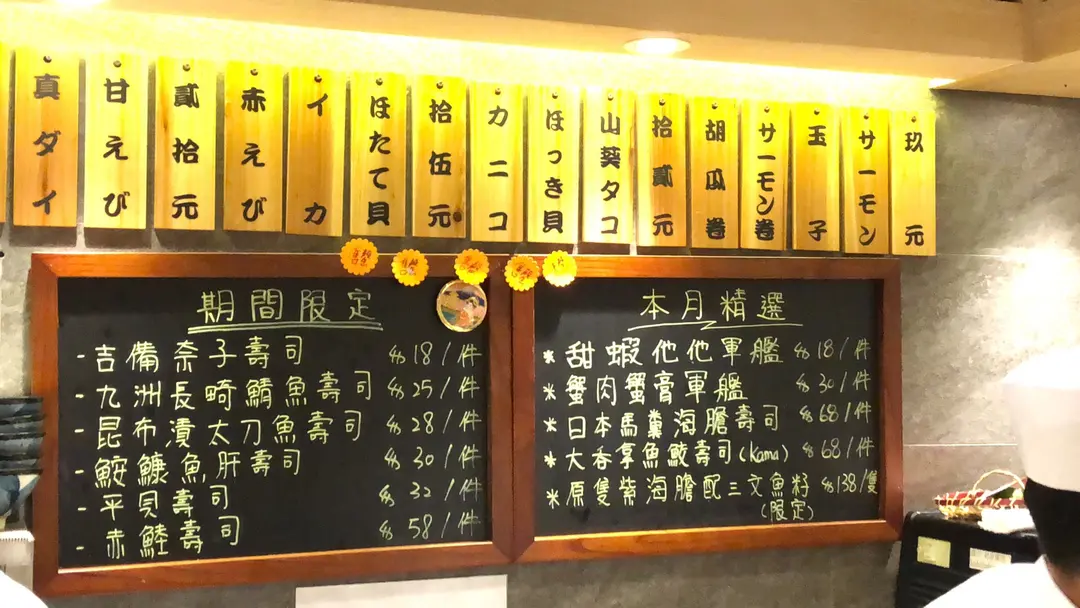 真ダイ
甘えび
貳拾元
赤えび
イカ
ほたて貝
拾伍元
カニコ
ほっき貝
山葵タコ
拾貳元
胡瓜巻
サーモン巻
玉子
サーモン
玖元
期間限定
- 吉備奈子壽司 $18/件
- 九洲長崎鯖魚壽司 $25/件
- 昆布漬太刀魚壽司 $28/件
- 鮟鱇魚肝壽司 $30/件
- 平貝壽司 $32/件
- 赤鯥壽司 $58/件
本月精選
* 甜蝦他他軍艦 $18/件
* 蟹肉蟹膏軍艦 $30/件
* 日本馬糞海膽壽司 $68/件
* 大吞拿魚鮫壽司(Kama) $68/件
* 原隻紫海膽配三文魚籽 $138/隻
(限定)